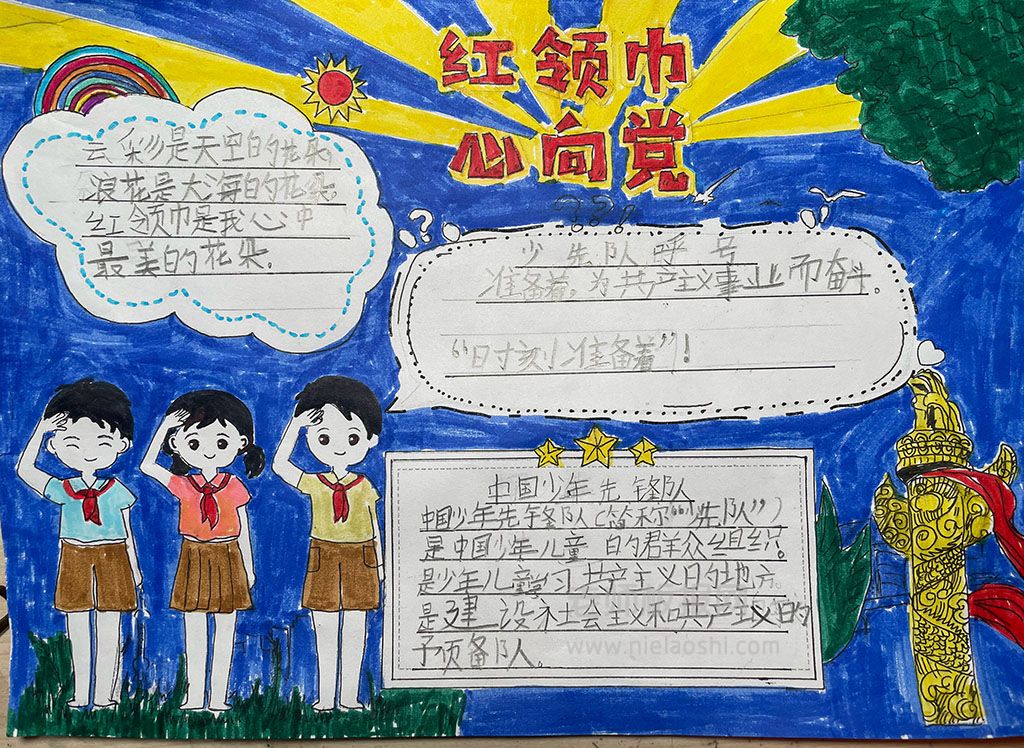 红领巾
心向党
云彩是天空的花朵,
浪花是大海的花朵.
红领巾是我心中
最美的花朵.
少先队呼号
准备着,为共产主义事业而奋斗.
“时刻准备着”!
中国少年先锋队
中国少年先锋队(简称“少先队”)
是中国少年儿童的群众组织.
是少年儿童学习共产主义的地方.
是建设社会主义和共产主义的
预备队.
www.nielaoshi.com